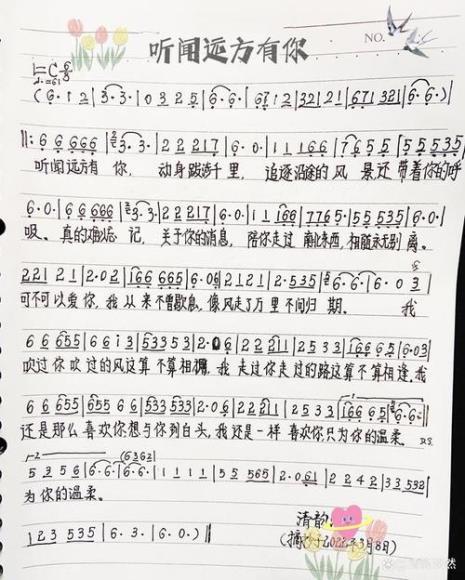 听闻远方有你
NO.
1=C 6/8
(6·12|3·3·|0325|6·6·|6712|3221|671321|6·6·)
‖:66666|3·3·|22217|6·0|11166|7655|55535|
听闻远方有 你, 动身跋涉千 里, 追逐沿途的 风 景还 带着你的呼
6·0|66666|3·3·|22217|6·0|11166|7765·|55535|6·0|
吸。 真的难以忘 记, 关于你的消息, 陪你走过 南北东西, 相随永无别 离。
22121|2·02|166665|6·06|2121|2·535|6·6·|6·03|
可不可以爱 你, 我 从来不曾歇息, 像风走了万 里 不问归 期。 我
66655|6613|53353|2·06|22211|2533|16665|6·03|
吹过你吹 过的风这算 不算相拥, 我 走过你走过的路这算不算相逢,我
66655|65566|533533|2·06|22211|2533|16665|6·6·:‖
还是那么喜欢你想与你到白头,我还是一样喜欢你,只为你的温柔。 D.S.
5356|6·6·|6·6·|1111|55565|2·061|2242|33532|
(6362)
为你的温柔。
123535|6·3·|6·0·)‖
清韵
(摘抄于2022年3月8日)